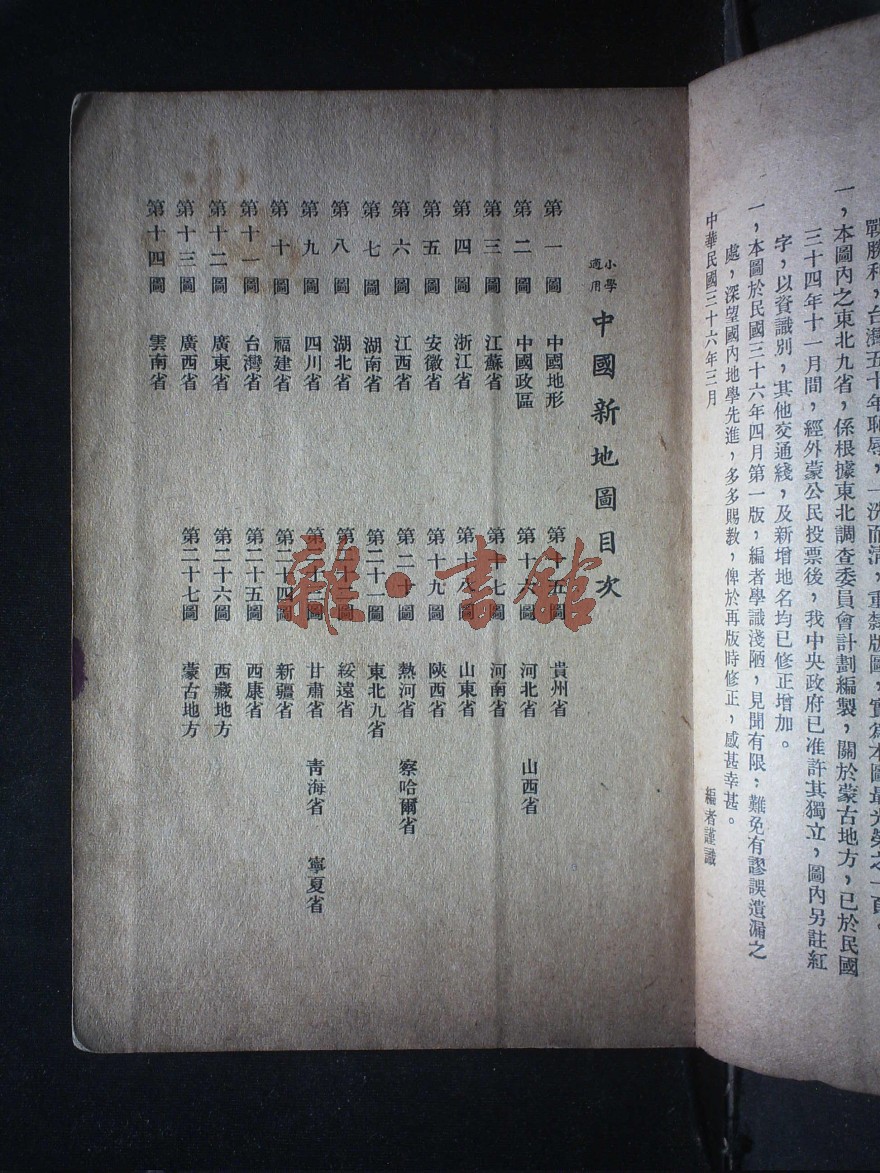 戰勝利，台灣五十年恥辱，一洗而清，重隸版圖，實為本圖最光榮之一頁。
一，本圖內之東北九省，係根據東北調查委員會計劃編製，關於蒙古地方，已於民國
三十四年十一月間，經外蒙公民投票後，我中央政府已准許其獨立，圖內另註紅
字，以資識別，其他交通綫，及新增地名均已修正增加。
一，本圖於民國三十六年四月第一版，編者學識淺陋，見聞有限；難免有謬誤遺漏之
處，深望國內地學先進，多多賜教，俾於再版時修正，感甚幸甚。
中華民國三十六年三月 編者謹識
小學適用 中國新地圖目次
第一圖 中國地形
第二圖 中國政區
第三圖 江蘇省
第四圖 浙江省
第五圖 安徽省
第六圖 江西省
第七圖 湖南省
第八圖 湖北省
第九圖 四川省
第十圖 福建省
第十一圖 台灣省
第十二圖 廣東省
第十三圖 廣西省
第十四圖 雲南省
第十五圖 貴州省
第十六圖 河北省 山西省
第十七圖 河南省
第十八圖 山東省
第十九圖 陝西省
第二十圖 熱河省 察哈爾省
第二十一圖 東北九省
第二十二圖 綏遠省
第二十三圖 甘肅省 青海省 寧夏省
第二十四圖 新疆省
第二十五圖 西康省
第二十六圖 西藏地方
第二十七圖 蒙古地方
雜·書館